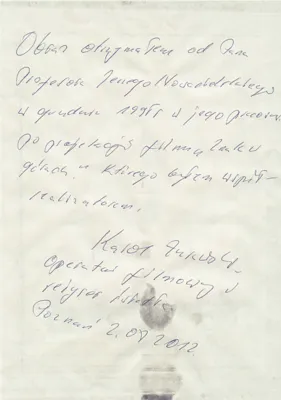 Obraz otrzymałem od Pana
Profesora Jerzego Nowosielskiego
w grudniu w jego pracowni
po projekcji filmu
którego byłem współ-
realizatorem.
Karol
operator filmowy i
reżyser
Poznań 2.08 2012